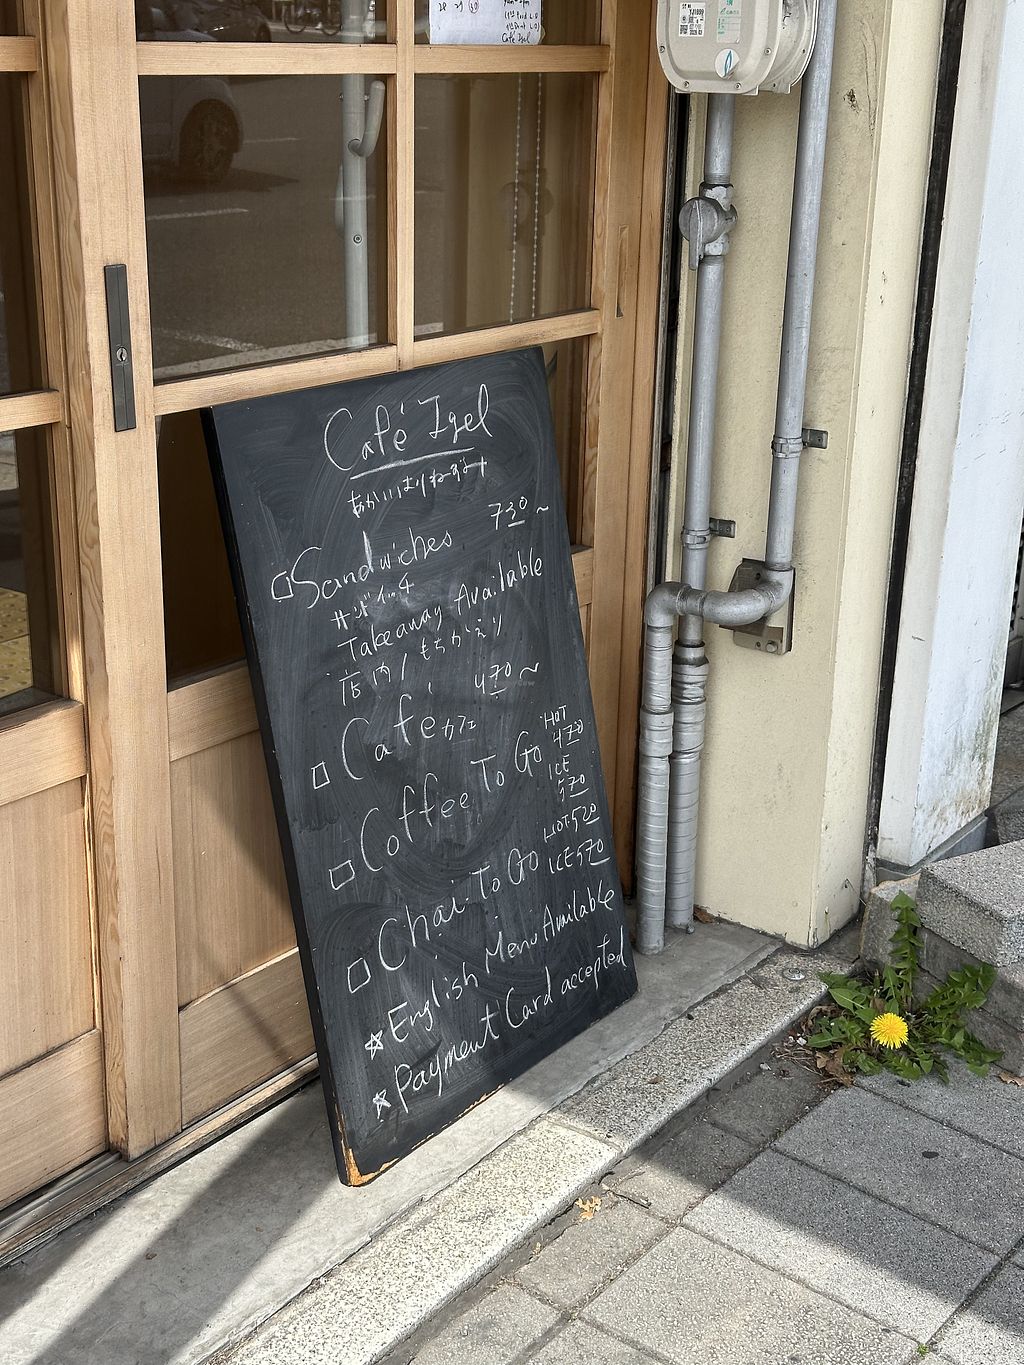 Café Igel
あかいはりねずみ
Sandwiches 730~
サンドイッチ
Takeaway Available
店内/もちかえり
Café カフェ 470~
Coffee To Go HOT 470
ICE 570
Chai To Go HOT 520
ICE 570
☆ English Menu Available
☆ Payment Card accepted